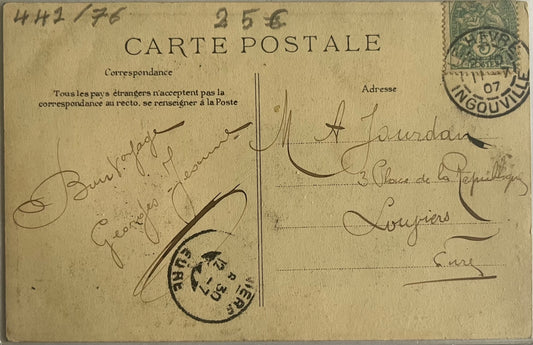 442/76
25€
CARTE POSTALE
Correspondance
Tous les pays étrangers n'acceptent pas la
correspondance au recto, se renseigner à la Poste
Bon Voyage
Georges Jeanne
Adresse
M A Jourdan
3 Place de la République
Louviers
Eure
HAVRE
07
INGOUVILLE
POSTES
VIERS
30
EURE